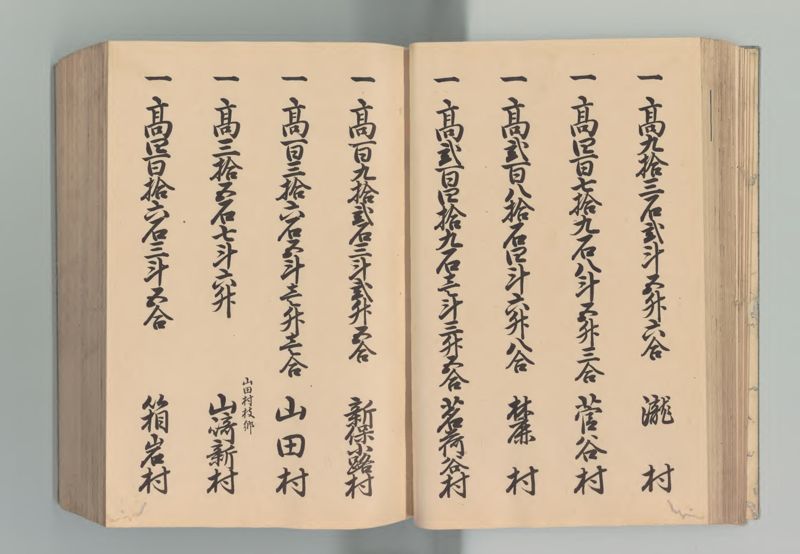 一 高九拾三石弐斗五升六合 瀧村
一 高四百七拾九石八斗五升三合 菅谷村
一 高弐百八拾石四斗六升八合 村
一 高弐百四拾九石壱斗三升五合 茗荷谷村
一 高百九拾弐石三斗弐升五合 新保小路村
一 高百三拾六石五斗壱升壱合 山田村
山田村枝郷
一 高三拾五石七斗六升 山崎新村
一 高四百拾六石三斗五合 箱岩村